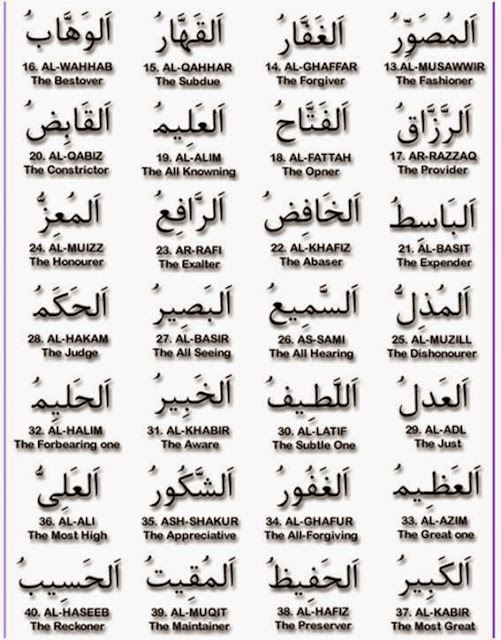 اَلمُصَوِّرُ
13.AL-MUSAWWIR
The Fashioner
اَلغَفَّارُ
14. AL-GHAFFAR
The Forgiver
اَلقَهَّارُ
15. AL-QAHHAR
The Subdue
اَلوَهَّابُ
16. AL-WAHHAB
The Bestover
اَلرَّزَّاقُ
17. AR-RAZZAQ
The Provider
اَلفَتَّاحُ
18. AL-FATTAH
The Opner
اَلعَلِيمُ
19. AL-ALIM
The All Knowing
اَلقَابِضُ
20. AL-QABIZ
The Constrictor
اَلبَاسِطُ
21. AL-BASIT
The Expender
اَلخَافِضُ
22. AL-KHAFIZ
The Abaser
اَلرَّافِعُ
23. AR-RAFI
The Exalter
اَلمُعِزُّ
24. AL-MUIZZ
The Honourer
اَلمُذِلُّ
25. AL-MUZILL
The Dishonourer
اَلسَّمِيعُ
26. AS-SAMI
The All Hearing
اَلبَصِيرُ
27. AL-BASIR
The All Seeing
اَلحَكَمُ
28. AL-HAKAM
The Judge
اَلعَدلُ
29. AL-ADL
The Just
اَللَّطِيفُ
30. AL-LATIF
The Subtle One
اَلخَبِيرُ
31. AL-KHABIR
The Aware
اَلحَلِيمُ
32. AL-HALIM
The Forbearing one
اَلعَظِيمُ
33. AL-AZIM
The Great one
اَلغَفُورُ
34. AL-GHAFUR
The All-Forgiving
اَلشَّكُورُ
35. ASH-SHAKUR
The Appreciative
اَلعَلِىُّ
36. AL-ALI
The Most High
اَلكَبِيرُ
37. AL-KABIR
The Most Great
اَلحَفِيظُ
38. AL-HAFIZ
The Preserver
اَلمُقِيتُ
39. AL-MUQIT
The Maintainer
اَلحَسِيبُ
40. AL-HASEEB
The Reckoner